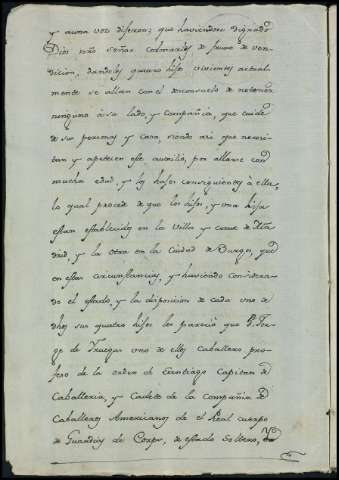 y aauna voz dijeron; que haviendose dignado
Dios nrõ señor colmarles de frutos de ven-
dicion, dandoles quatro hijos vivientes actual-
mente se allan con el desconsuelo de no tener
ninguno à su lado, y compañia, que cuide
de sus personas y casa, siendo asi que necesi-
tan y apetecen este auxilio, por allarse con
mucha edad, y los hajes consiguientes à ella,
lo qual procede de que los hijos, y una hija
estan establecidos en la Villa y corte de Ma-
drid, y la otra en la Ciudad de Burgos, que
en estas circunstancias, y haviendo considera-
do el estado, y la disposicion de cada uno de
dhos sus quatro hijos les parecio que D. Jor-
ge de Truegas uno de ellos Caballero pro-
feso de la orden de Santiago Capitan de
Caballeria, y Cadete de la Compañia de
Caballeros Americanos de el Real cuerpo
de Guardias de Corps, de estado Soltero,